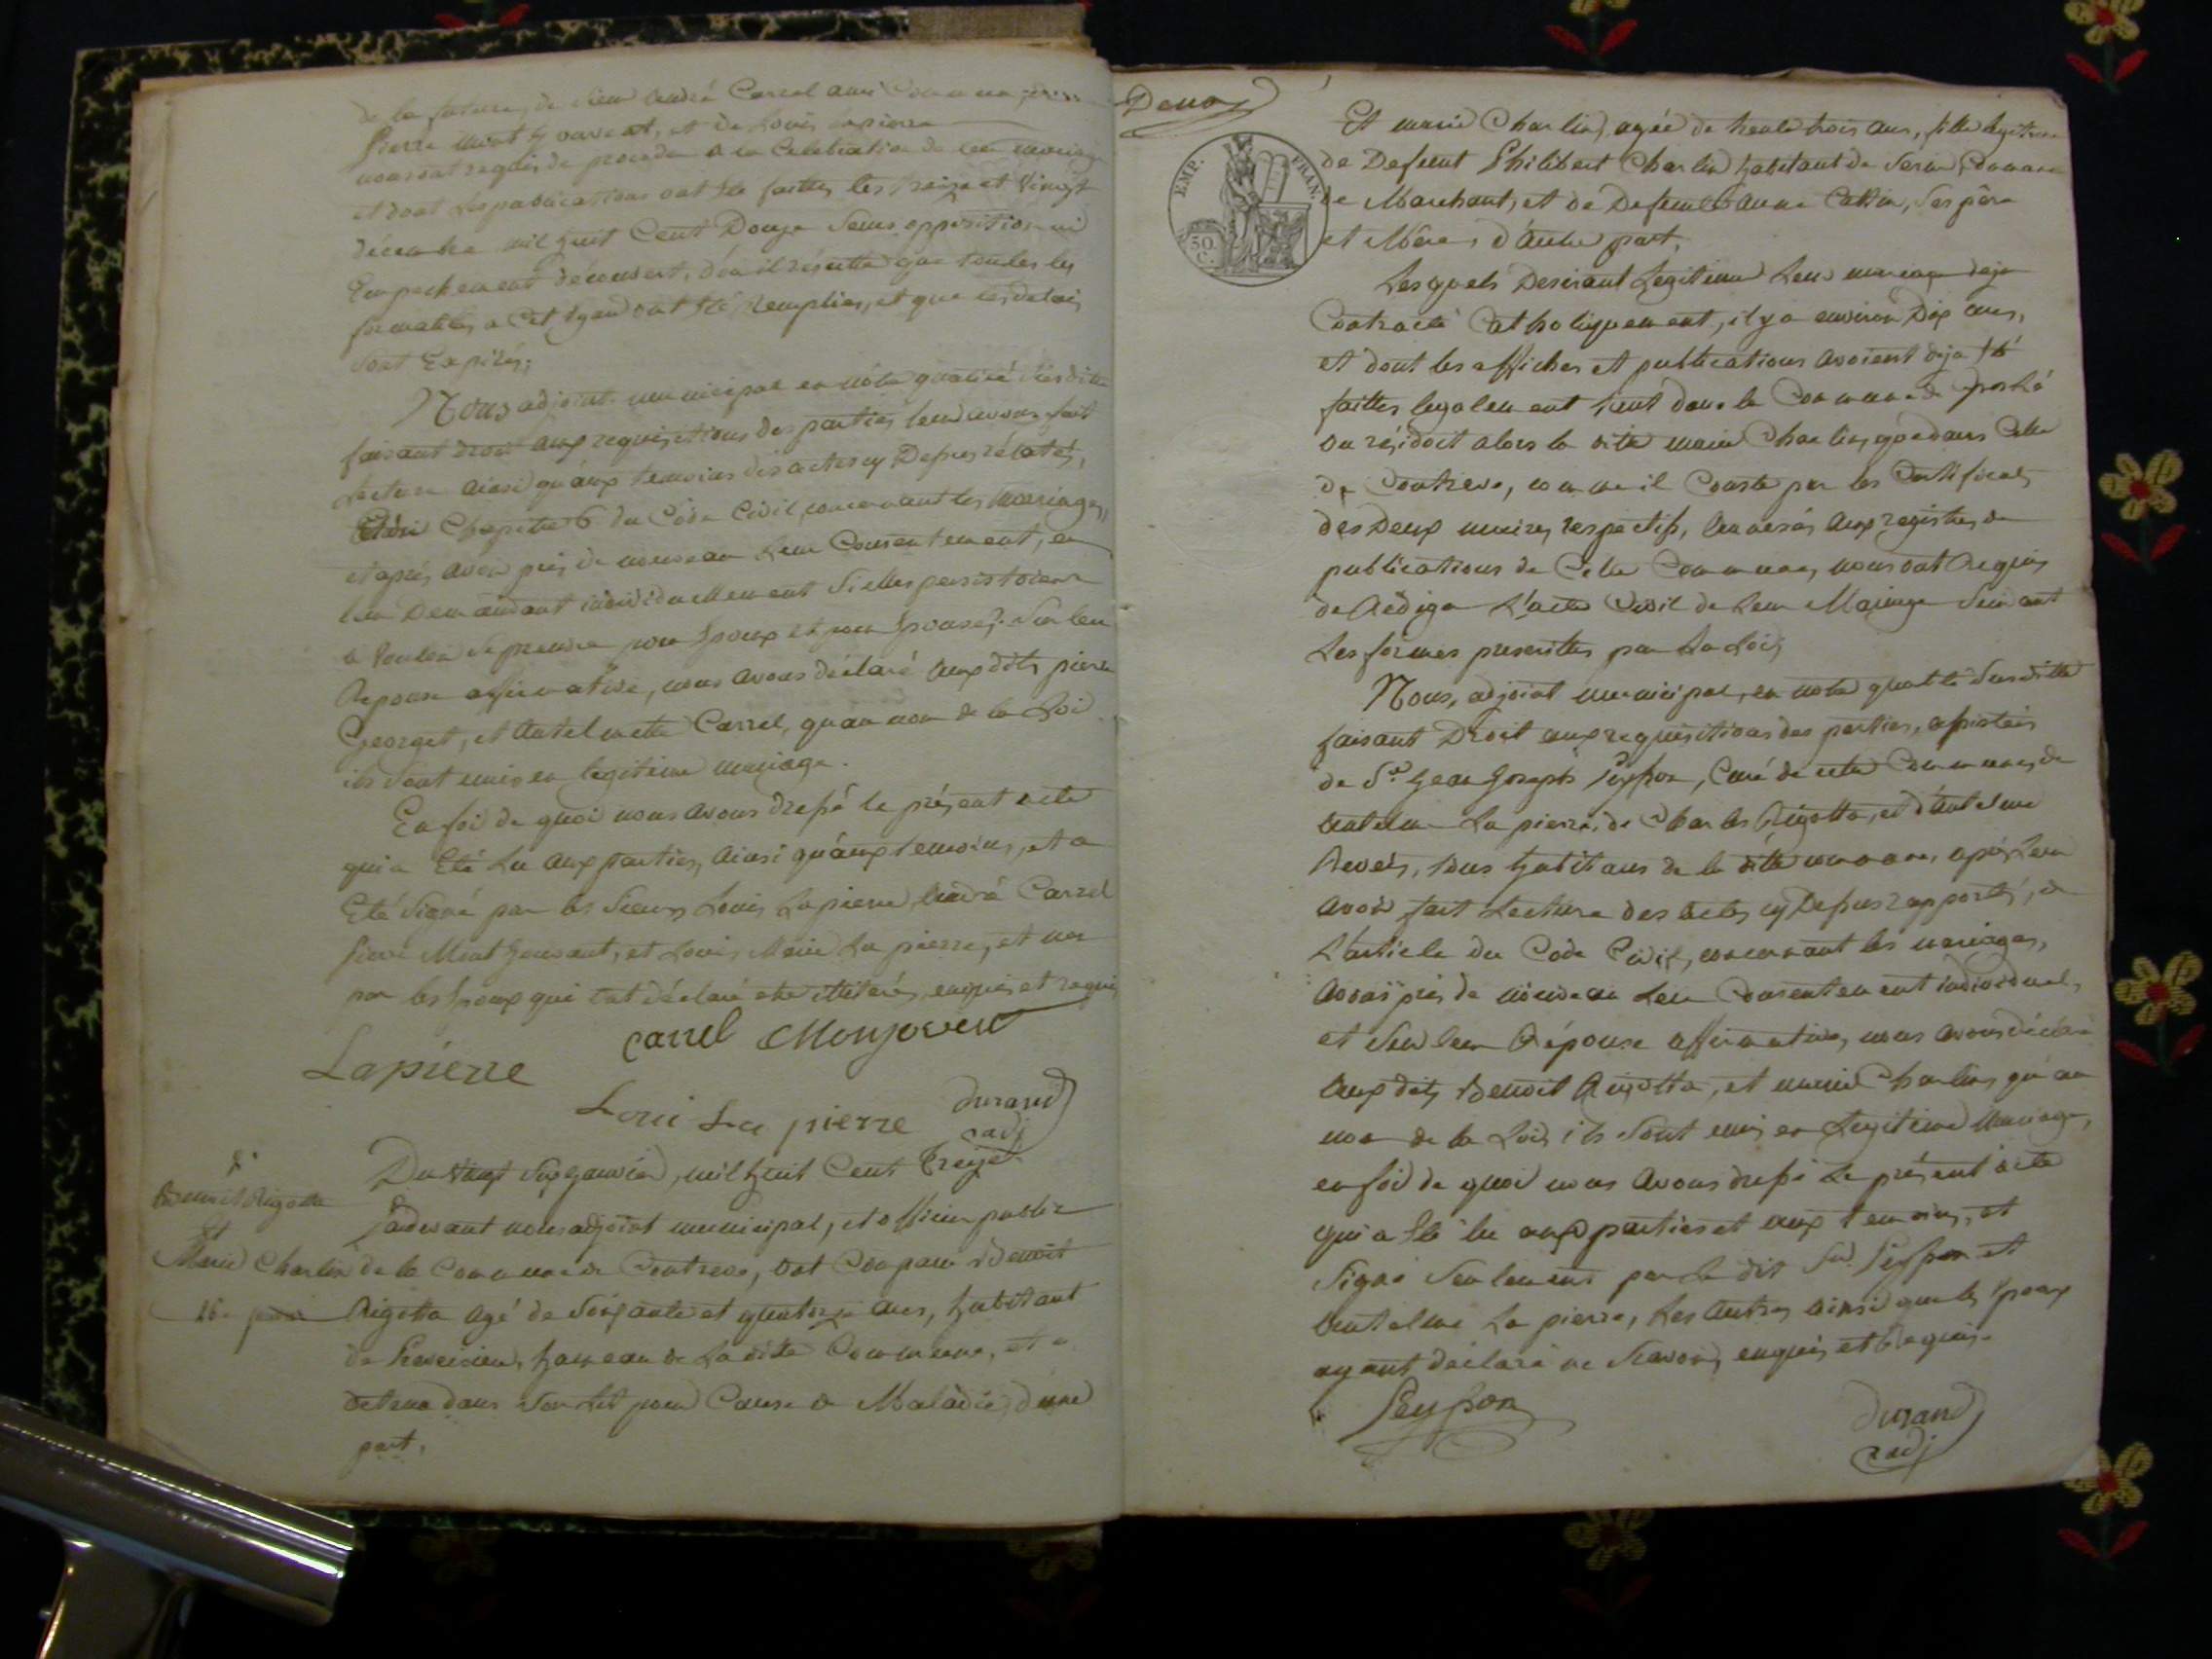 de la future, de Sieur André Carrel aussi Commune,
Pierre Montgouvent, et de Louis Lapierre
nous ont requis de proceder à la Celebration de leur mariage
et dont les publications ont été faittes les treize et Vingt
décembre mil huit Cent Douze sans opposition ni
Empechement découvert, d'où il résulte que toutes les
formalités a Cet égard ont été remplies, et que les delais
sont Expirés;
Nous adjoint municipal en nôtre qualité susditte
faisant droit aux requisitions des parties, leur avons fait
Lecture ainsi qu'aux temoins des actes cy Dessus rélatés,
Chapitre 6 du Code Civil concernant les Mariages,
et après avoir pris de nouveau leur Consentement, en
leur Demandant individuellement Si elles persistoient
a vouloir se prendre pour Epoux et pour Epouse; Sur leur
Reponse affirmative, nous avons déclaré auxdits pierre
Georget, et Antelmette Carrel, qu'au nom de la Loi
ils sont unis en legitime mariage.
En foi de quoi nous avons dressé le présent acte
qui a Eté lu aux parties, ainsi qu'aux temoins, et a
Eté Signé par les Sieurs Louis Lapierre, André Carrel
pierre Montgouvent, et Louis Marie La pierre, et non
par les Epoux qui ont déclaré etre illiterés, enquis et requis
Carrel Monjovent
Lapierre
Loui La pierre Durand
adj
Du vingt Six janvier, mil huit Cent treize
Benoit Rigotta
Pardevant nous adjoint municipal, et officier public
et
Marie Charlin de la Commune de Contrevo, ont Comparu Benoit
26. Rigotta agé de Soixante et quatorze ans, habitant
de hameau de La ditte Commune, et
detenu dans Son Lit pour Cause de Maladie, d'une
part,
Deux
EMP. FRAN.
50. C.
Et marie Charlin, agée de trente trois ans, fille legitime
de Defunt Philibert Charlin habitant de
de Marchant, et de Defunte Anne Cattin, Ses père
et Mère, d'autre part,
Lesquels Desirant Legitimer Leur mariage deja
Contracté Catholiquement, il y a environ Dix ans,
et dont les affiches et publications avoient deja été
faittes legalement tient dans la Commune de
ou résidoit alors la ditte marie Charlin, que dans Celle
de Contrevo, comme il Conste par les Certificats
des Deux maires respectifs, Annexés aux registres de
publications de Cette Commune, nous ont Requis
de Rédiger L'acte Civil de Leur Mariage Suivant
Les formes prescrittes par La Loi;
Nous, adjoint municipal, en notre qualité Susditte
faisant Droit aux requisitions des parties, assistés
de Sr. Jean Joseph Peysson, Curé de cette Commune, de
Antelme La pierre, de Charles Rigotta, et d'Antelme
tous habitans de la ditte commune, après Leur
avoir fait Lecture des actes cy Dessus rapportés, de
L'article du Code Civil, concernant les mariages,
avons pris de nouveau Leur Consentement individuel,
et Sur leur Réponse affirmative, nous avons déclaré
auxdits Benoit Rigotta, et marie Charlin, qu'au
nom de la Loi, ils Sont unis en Legitime Mariage,
en foi de quoi nous avons dressé Le présent acte
qui a été lu aux parties et aux temoins, et
Signé Seulement par Le dit Sr. Peysson et
Antelme La pierre, Les Autres ainsi que les Epoux
ayant déclaré ne Scavoir, enquis et Requis.
Peysson Durand
adj